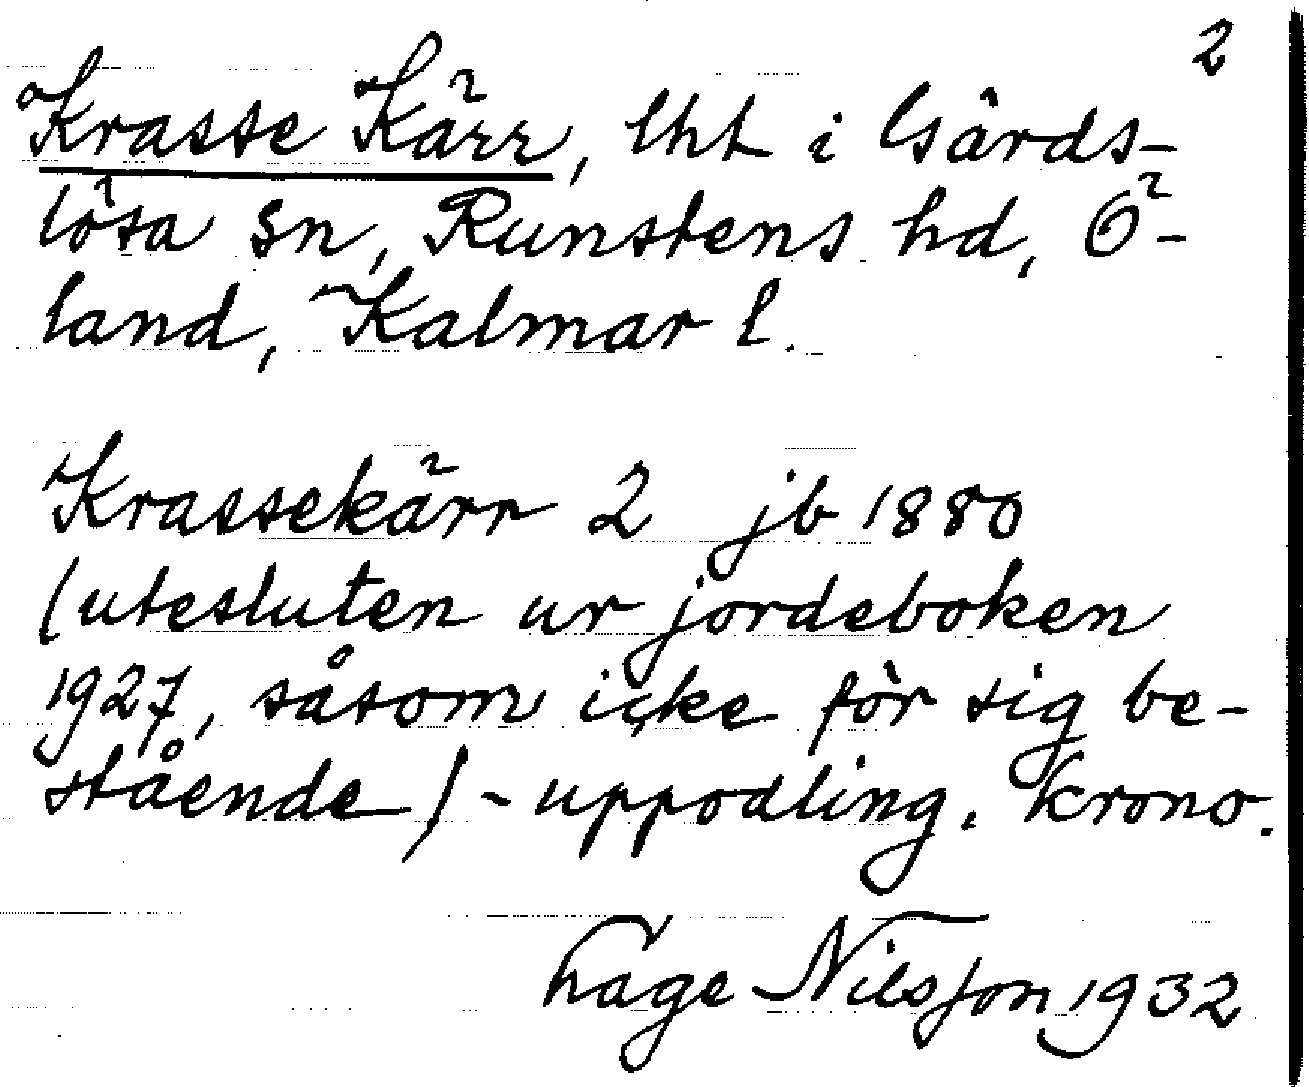 2
Krasse Kärr, lht i Gärds-
lösa sn, Runstens hd, Ö-
land, Kalmar l.
Krassekärr 2 jb 1880
(utesluten ur jordeboken
1927, såsom icke för sig be-
stående) - uppodling. Krono.
Hage Nilsson 1932